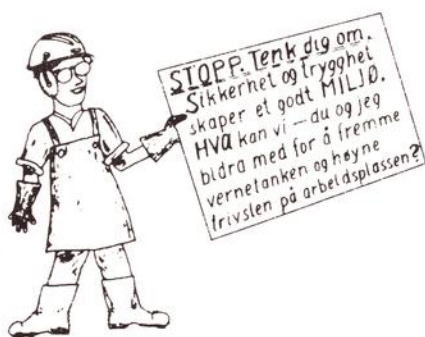 STOPP. Tenk dig om.
Sikkerhet og trygghet
skaper et godt MILJØ.
HVA kan vi – du og jeg
bidra med for å fremme
vernetanken og høyne
trivslen på arbeidsplassen?